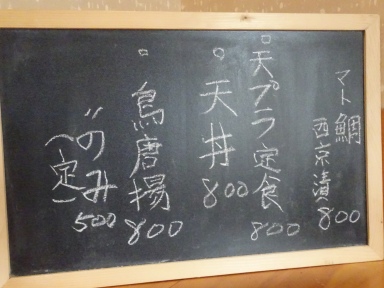 マト鯛
西京漬 800
。天プラ定食 800
。天丼 800
。鳥唐揚 800
〃のみ 500
(定)